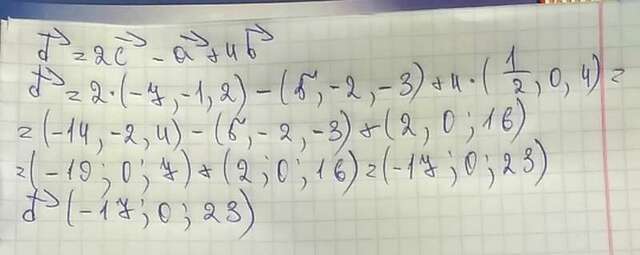 d⃗ = 2c⃗ - a⃗ + 4b⃗
d⃗ = 2·(-7,-1,2) - (5,-2,-3) + 4·(1/2; 0, 4) =
= (-14, -2, 4) - (5, -2, -3) + (2, 0; 16)
= (-19; 0; 7) + (2; 0; 16) = (-17; 0; 23)
d⃗ (-17; 0; 23)